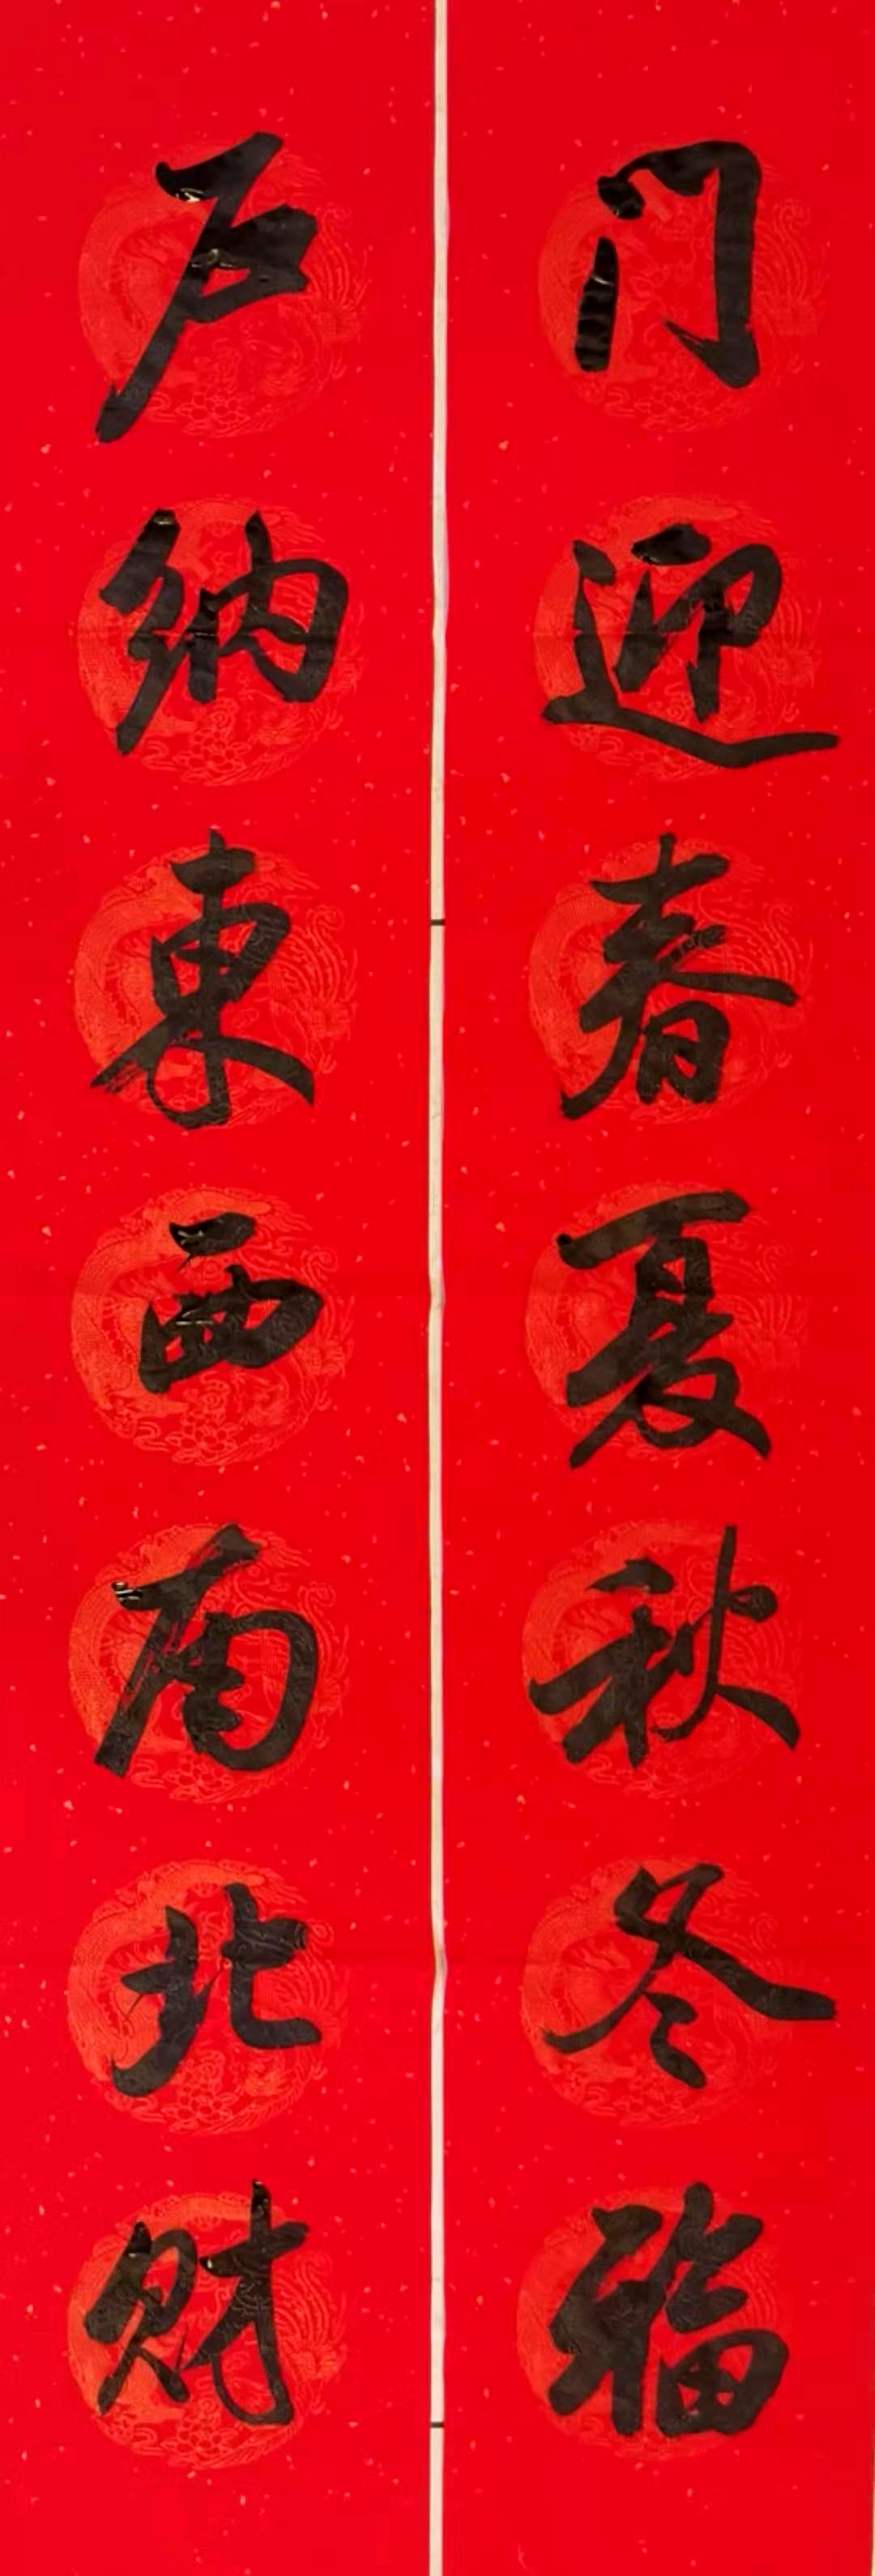 门迎春夏秋冬福
户纳東西南北财